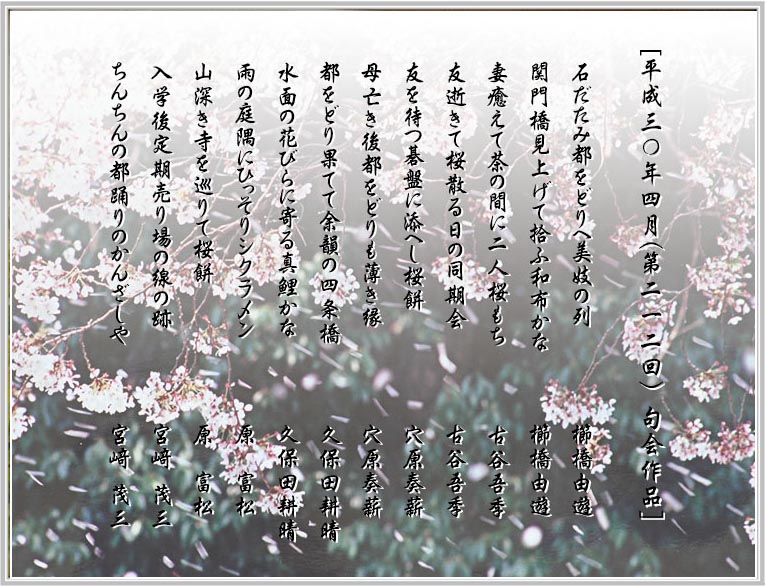 [平成三〇年四月(第二一二回) 句会作品]
石だたみ都をどりへ美妓の列 櫛橋由遊
関門橋見上げて拾ふ和布かな 櫛橋由遊
妻癒えて茶の間に二人桜もち 古谷吾季
友逝きて桜散る日の同期会 古谷吾季
友を待つ碁盤に添へし桜餅 穴原奏薪
母亡き後都をどりも薄き縁 穴原奏薪
都をどり果てて余韻の四条橋 久保田耕晴
水面の花びらに寄る真鯉かな 久保田耕晴
雨の庭隅にひっそりシクラメン 原 富松
山深き寺を巡りて桜餅 原 富松
入学後定期売り場の線の跡 宮﨑 茂三
ちんちんの都踊りのかんざしや 宮﨑 茂三